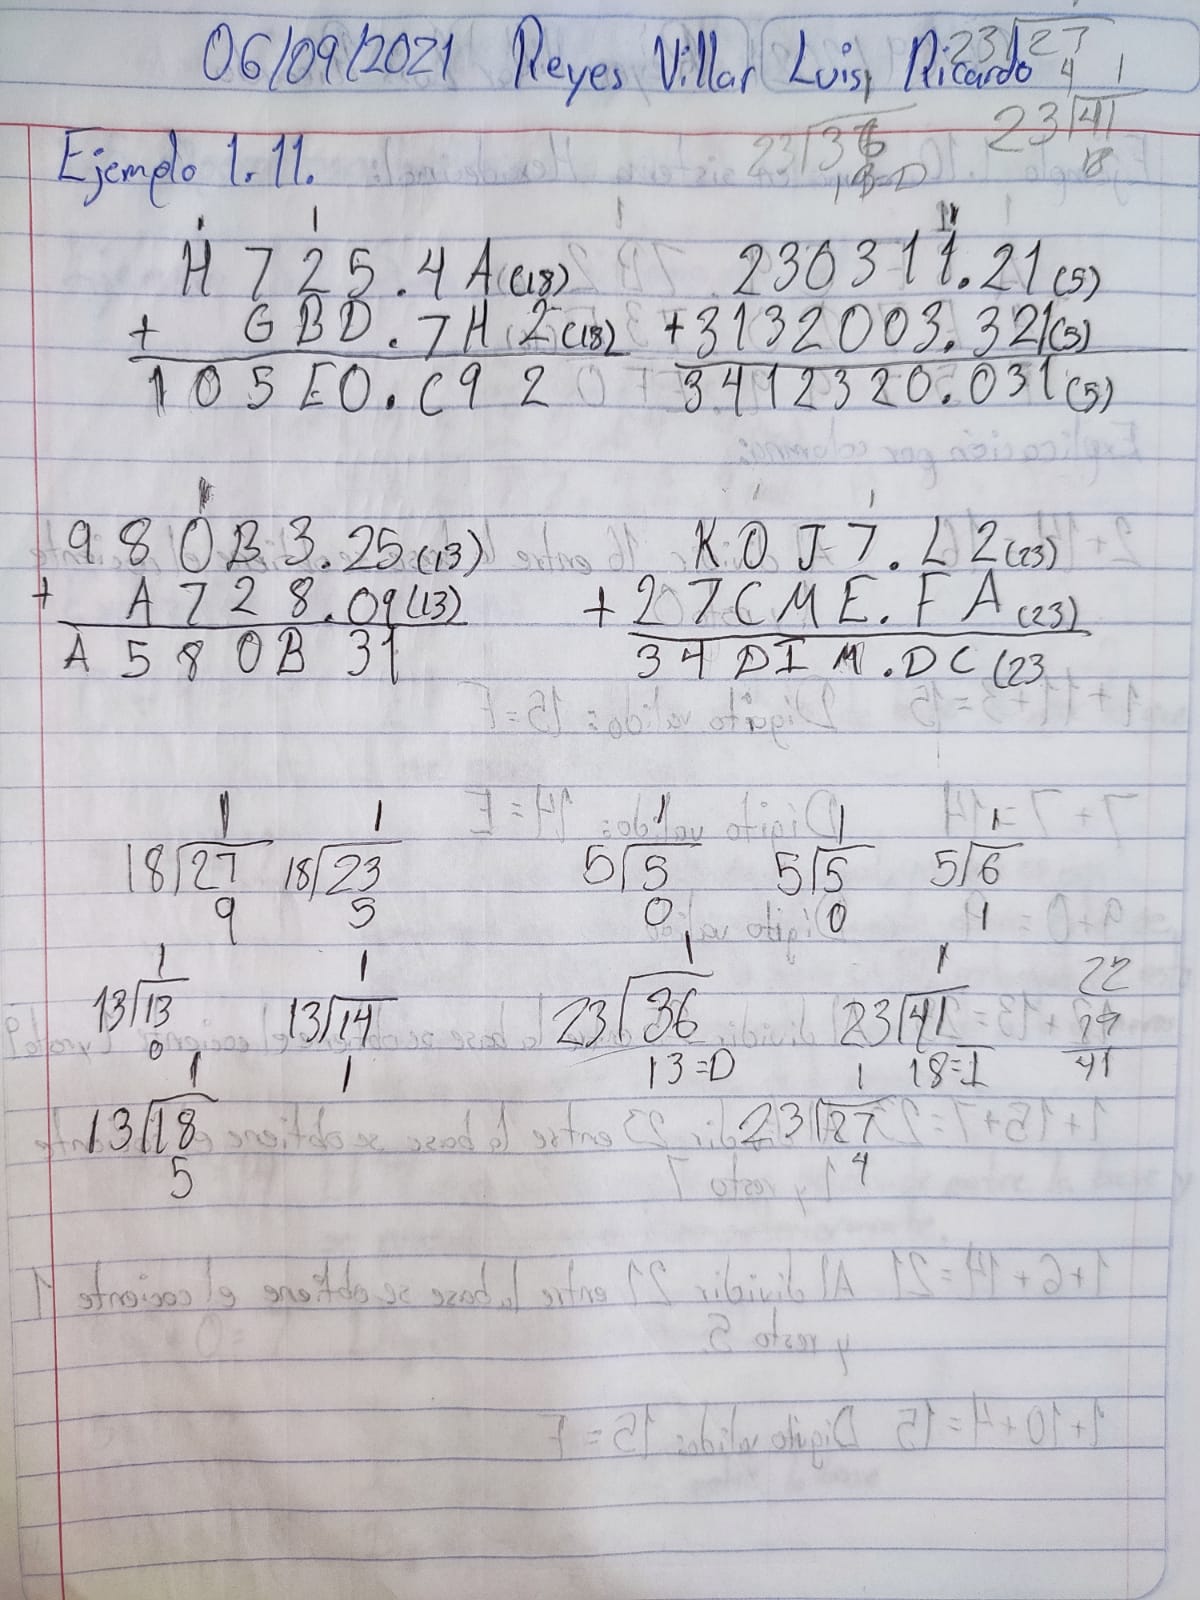 06/09/2021 Reyes Villar Luis Ricardo
23√27
4
1
23√41
18
23√36
13=D
Ejemplo 1.11.
1 1
H 7 2 5 . 4 A (18)
+ G B D . 7 H 2 (18)
1 0 5 E 0 . C 9 2
11
230311.21 (5)
+3132003.321(5)
3412320.031 (5)
1
9 8 0 B 3 . 2 5 (13)
+ A 7 2 8 . 0 9 (13)
A 5 8 0 B 3 1
1 1
K 0 J 7 . L 2 (23)
+ 2 7 C M E . F A (23)
3 4 D I M . D C (23
1 1 1 1 1
18√27 18√23 5√5 5√5 5√6
9 5 0 0 1
1 1 1 1 22
13√13 13√14 23√36 23√41
0 1 13=D 18=I 41
1 1
13√18 23√27
5 4